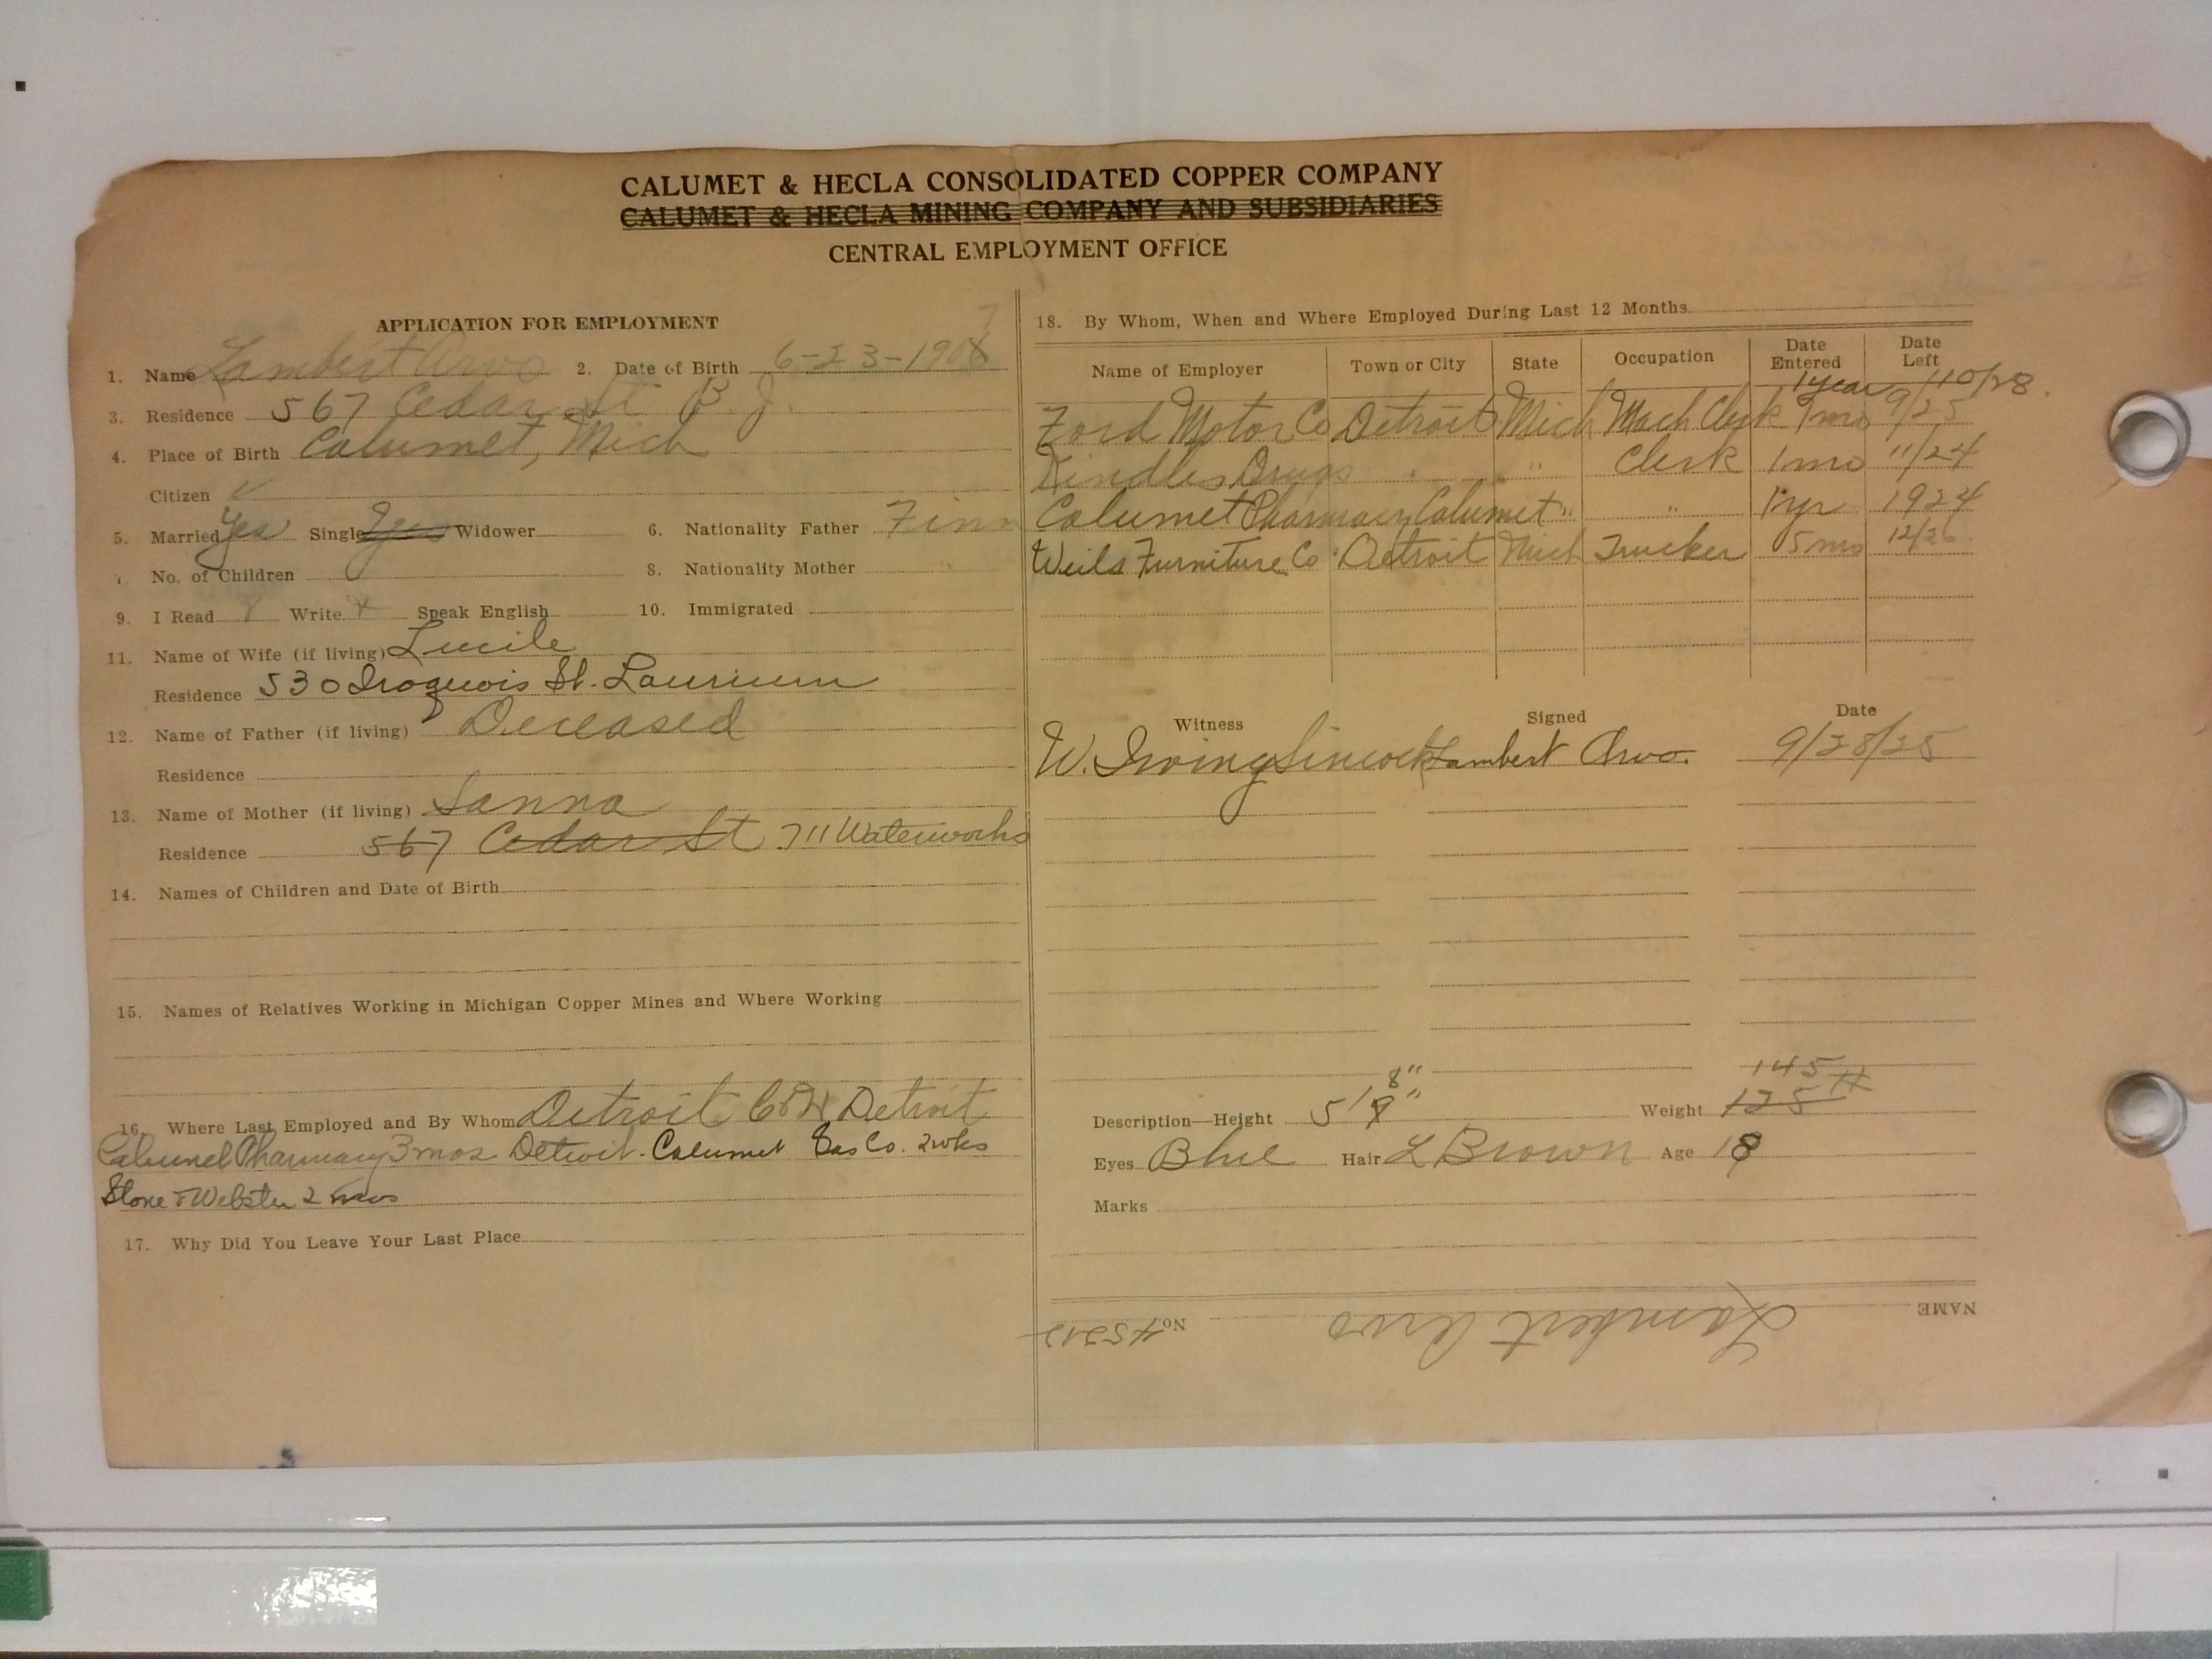 CALUMET & HECLA CONSOLIDATED COPPER COMPANY
CALUMET & HECLA MINING COMPANY AND SUBSIDIARIES
CENTRAL EMPLOYMENT OFFICE
APPLICATION FOR EMPLOYMENT
1. Name Lambert Arvo 2. Date of Birth 6-23-190 7
3. Residence 567 Cedar St B. J.
4. Place of Birth Calumet, Mich
Citizen
5. Married Yes Single Yes Widower 6. Nationality Father Finn
7. No. of Children 8. Nationality Mother
9. I Read Write Speak English 10. Immigrated
11. Name of Wife (if living) Lucile
Residence 530 Iroquois St. Laurium
12. Name of Father (if living) Deceased
Residence
13. Name of Mother (if living) Sanna
Residence 567 Cedar St 711 Waterworks
14. Names of Children and Date of Birth
15. Names of Relatives Working in Michigan Copper Mines and Where Working
16. Where Last Employed and By Whom Detroit C&H Detroit
Calumet Pharmacy 3 mos Detroit - Calumet Gas Co. 2 wks
Stone & Webster 2 mos
17. Why Did You Leave Your Last Place
18. By Whom, When and Where Employed During Last 12 Months
Name of Employer Town or City State Occupation Date Entered Date Left
1 year 9/10/28.
Ford Motor Co Detroit Mich Mach Clerk 1 mo 9/25
Kindles Drugs " " Clerk 1 mo 11/24
Calumet Pharmacy Calumet " " 1 yr 1924
Weils Furniture Co Detroit Mich Trucker 5 mo 12/26
Witness Signed Date
W. Irving Sincock Lambert Arvo. 9/28/25
8" 145
Description—Height 5' 9" Weight 125 #
Eyes Blue Hair L Brown Age 18
Marks
NAME Lambert Arvo No. 45212